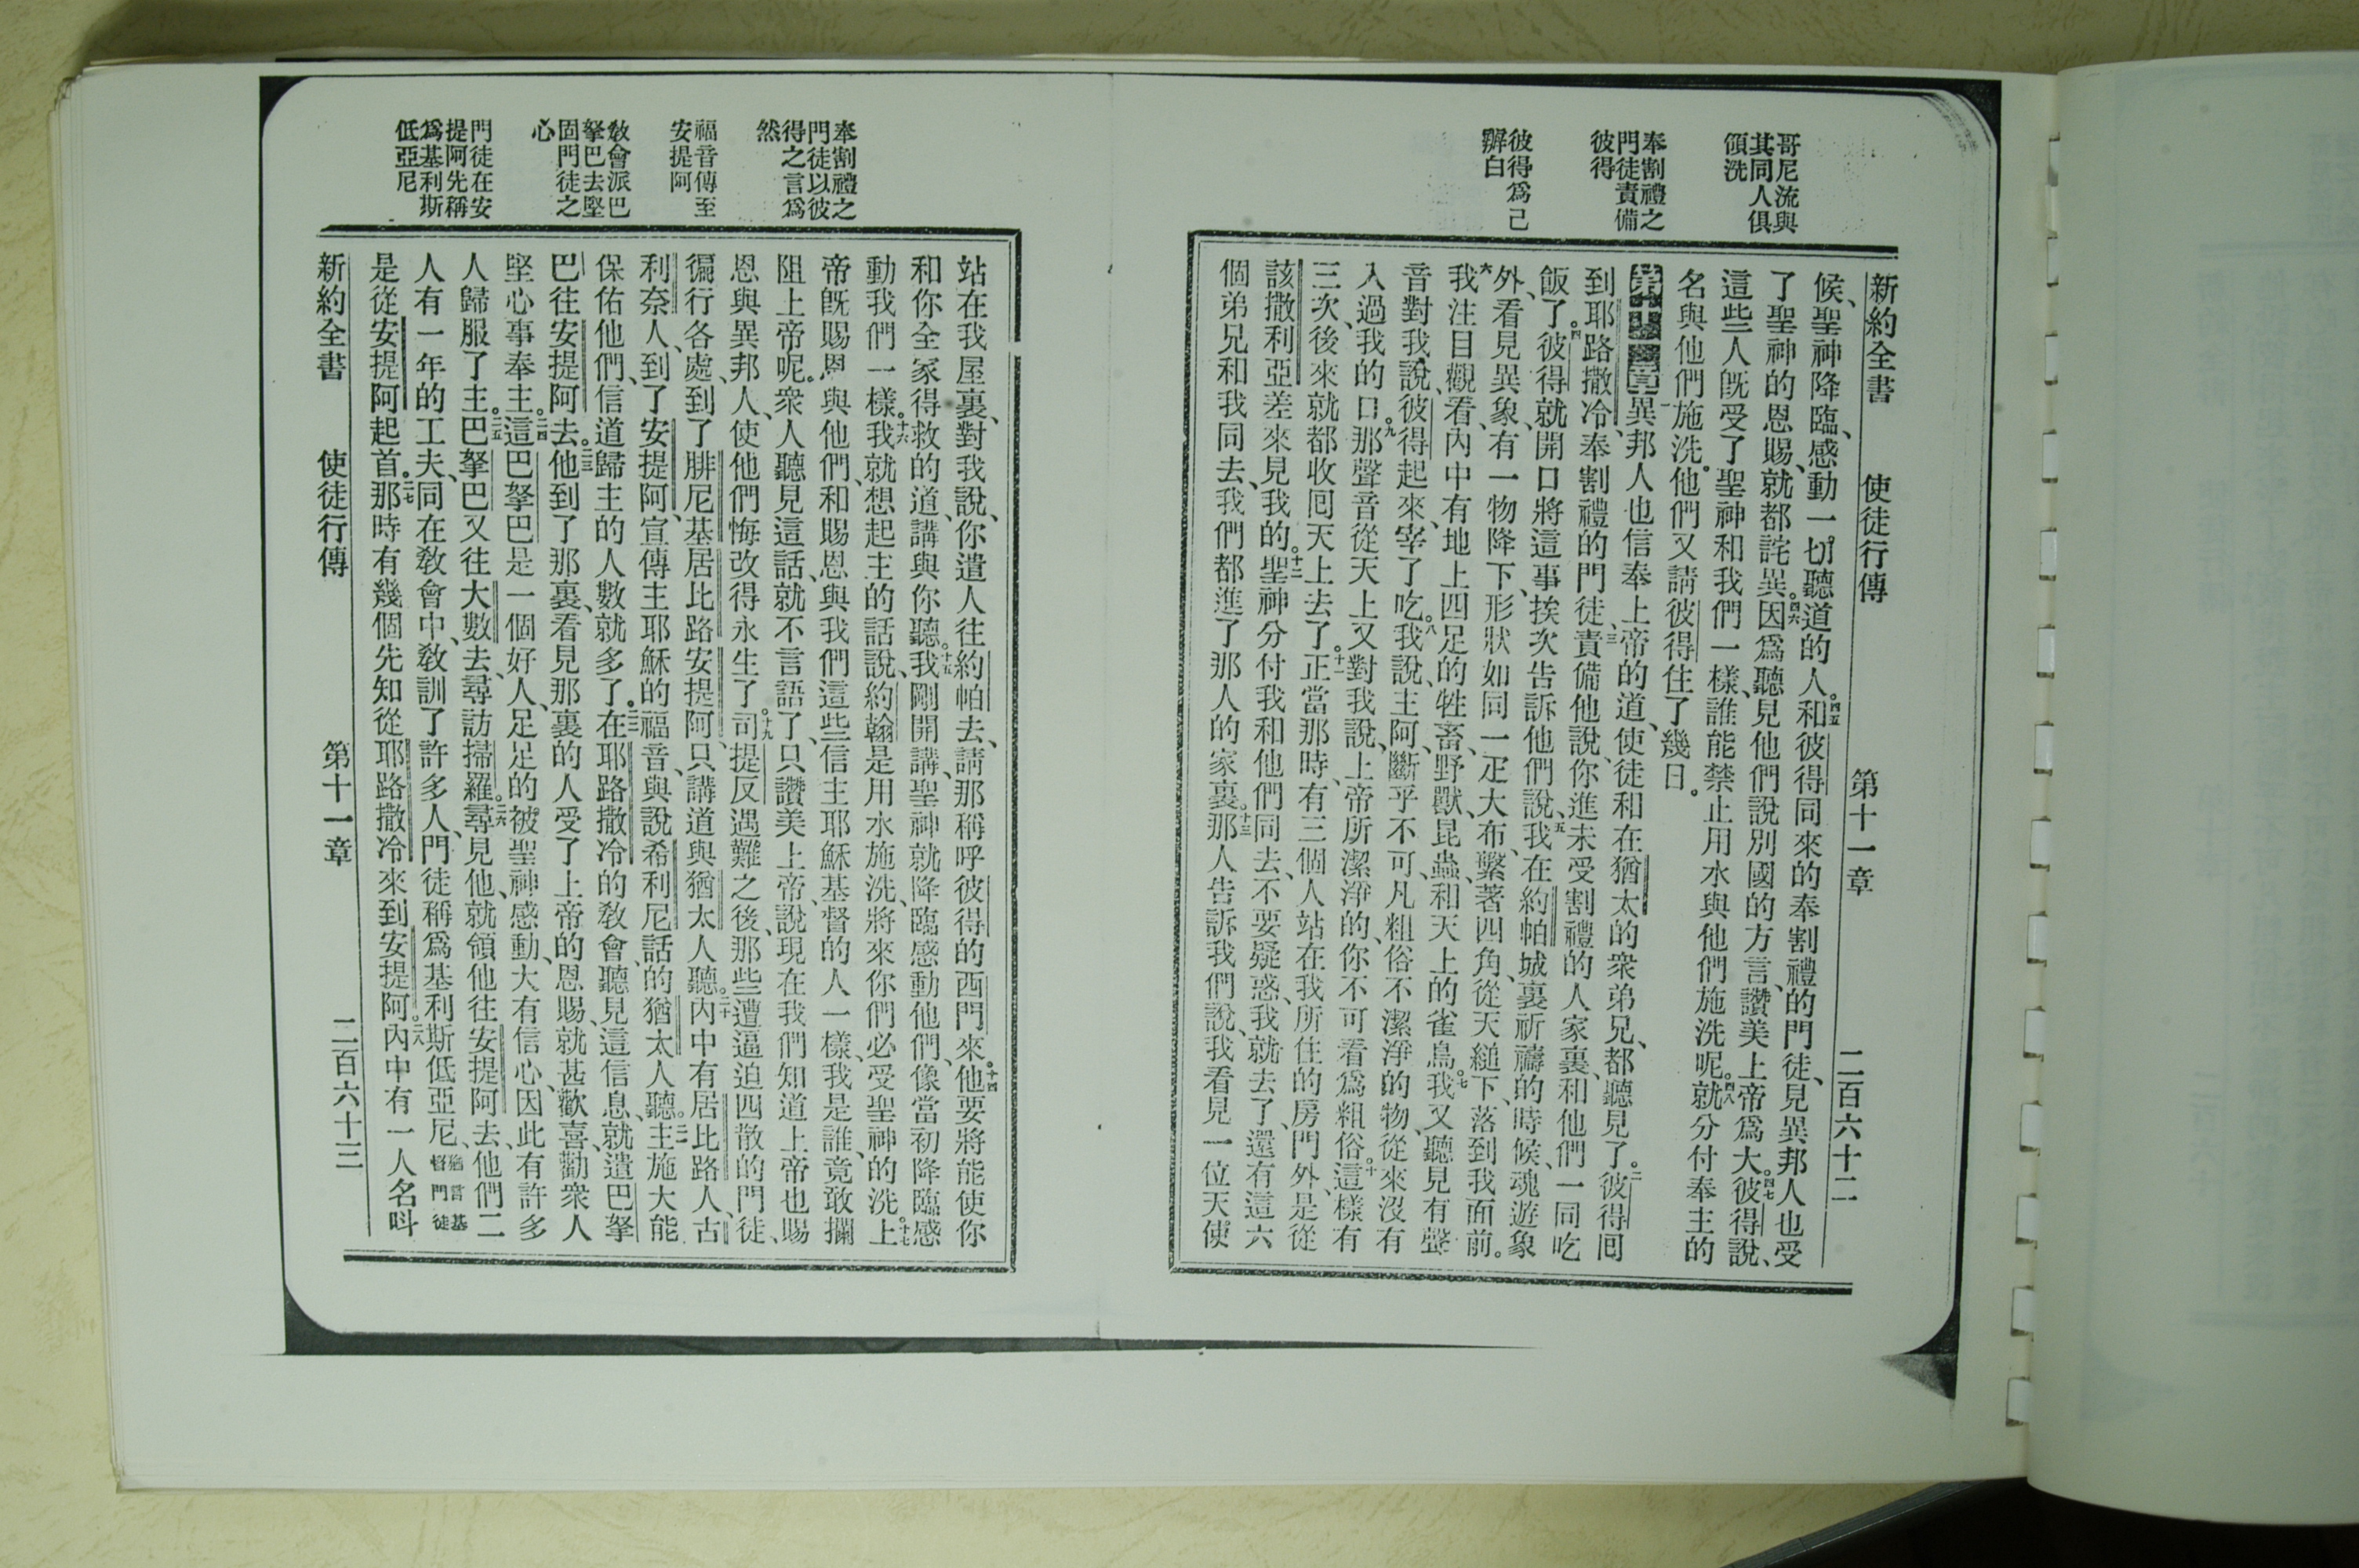 哥尼流與
其同人俱
領洗
奉割禮之
門徒責備
彼得
彼得爲己
辯白
新約全書 使徒行傳 第十一章 二百六十二
候、聖神降臨、感動一切聽道的人。四五和彼得同來的奉割禮的門徒、見異邦人也受
了聖神的恩賜、就都詫異。四六因爲聽見他們說別國的方言、讚美上帝爲大。四七彼得說、
這些人旣受了聖神和我們一樣、誰能禁止用水與他們施洗呢。四八就分付奉主的
名與他們施洗。他們又請彼得住了幾日。
第十一章 一異邦人也信奉上帝的道、使徒和在猶太的衆弟兄、都聽見了。二彼得囘
到耶路撒冷、奉割禮的門徒、三責備他說、你進未受割禮的人家裏、和他們一同吃
飯了。四彼得就開口將這事挨次告訴他們說、五我在約帕城裏祈禱的時候、魂遊象
外、看見異象、有一物降下、形狀如同一疋大布、繫著四角、從天縋下、落到我面前。
六我注目觀看、內中有地上四足的牲畜、野獸、昆蟲、和天上的雀鳥。七我又聽見有聲
音對我說、彼得起來、宰了吃。八我說、主阿、斷乎不可、凡粗俗不潔淨的物、從來沒有
入過我的口。九那聲音從天上又對我說、上帝所潔淨的、你不可看爲粗俗。十這樣有
三次、後來就都收囘天上去了。十一正當那時、有三個人站在我所住的房門外、是從
該撒利亞差來見我的。十二聖神分付我和他們同去、不要疑惑、我就去了、還有這六
個弟兄和我同去、我們都進了那人的家裏。十三那人告訴我們說、我看見一位天使
奉割禮之
門徒以彼
得之言爲
然
福音傳至
安提阿
敎會派巴
拏巴去堅
固門徒之
心
門徒在安
提阿先稱
爲基利斯
低亞尼
站在我屋裏、對我說、你遣人往約帕去、請那稱呼彼得的西門來。十四他要將能使你
和你全家得救的道、講與你聽。十五我剛開講、聖神就降臨感動他們、像當初降臨感
動我們一樣。十六我就想起主的話說、約翰是用水施洗、將來你們必受聖神的洗。十七上
帝旣賜恩與他們、和賜恩與我們這些信主耶穌基督的人一樣、我是誰、竟敢攔
阻上帝呢。衆人聽見這話、就不言語了、只讚美上帝、說現在我們知道上帝也賜
恩與異邦人、使他們悔改得永生了。十九司提反遇難之後、那些遭逼迫四散的門徒、
徧行各處、到了腓尼基、居比路、安提阿、只講道與猶太人聽。二十內中有居比路人、古
利奈人、到了安提阿、宣傳主耶穌的福音、與說希利尼話的猶太人聽。二一主施大能
保佑他們、信道歸主的人數就多了。二二在耶路撒冷的敎會、聽見這信息、就遣巴拏
巴往安提阿去。二三他到了那裏、看見那裏的人受了上帝的恩賜、就甚歡喜、勸衆人
堅心事奉主。二四這巴拏巴是一個好人、足足的被聖神感動、大有信心、因此有許多
人歸服了主。二五巴拏巴又往大數去、尋訪掃羅。二六尋見他、就領他往安提阿去、他們二
人有一年的工夫、同在敎會中、敎訓了許多人、門徒稱爲基利斯低亞尼、
是從安提阿起首。二七那時有幾個先知從耶路撒冷來到安提阿。二八內中有一人名呌
新約全書 使徒行傳 第十一章 二百六十三